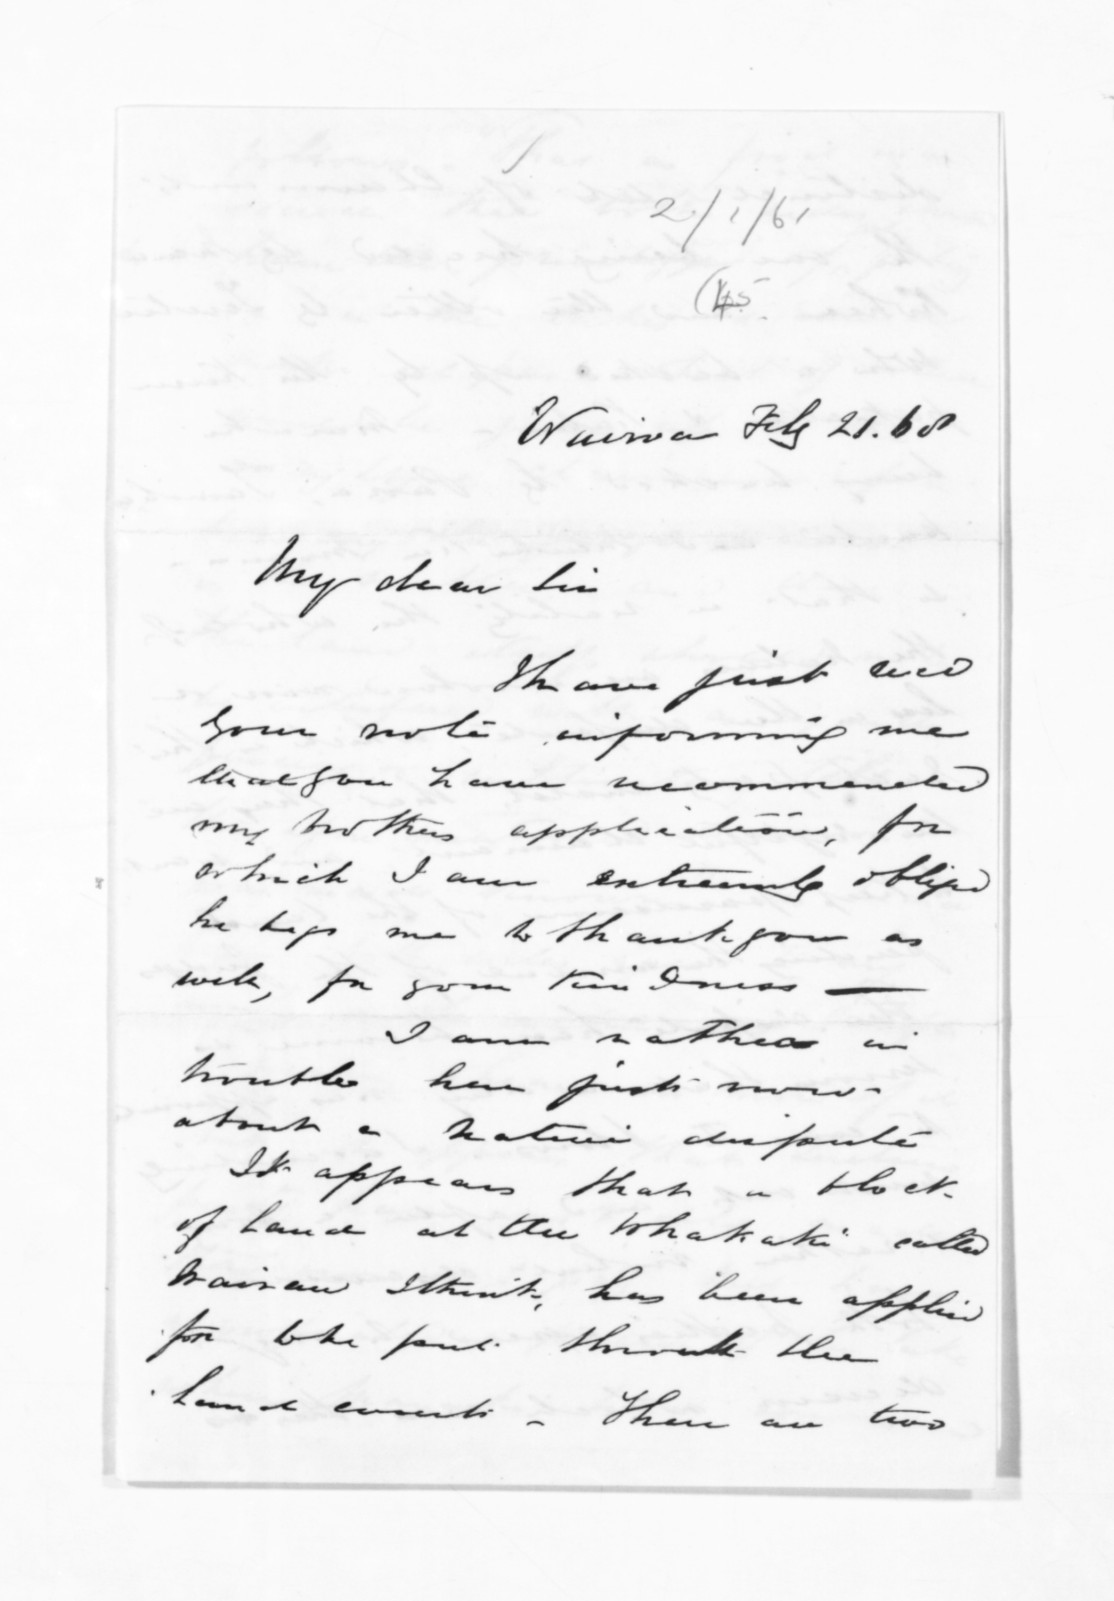 2/1/61
(45.
Wairoa Feby 21. 68
My dear Sir
I have just recd
your note informing me
that you have recommended
my brothers application, for
which I am extremely obliged
he begs me to thank you as
well, for your kindness —
I am rather in
trouble here just now
about a native dispute
It appears that a block
of land at the Whakaki called
Wairau I think, has been applied
for to be put through the
land court - There are two